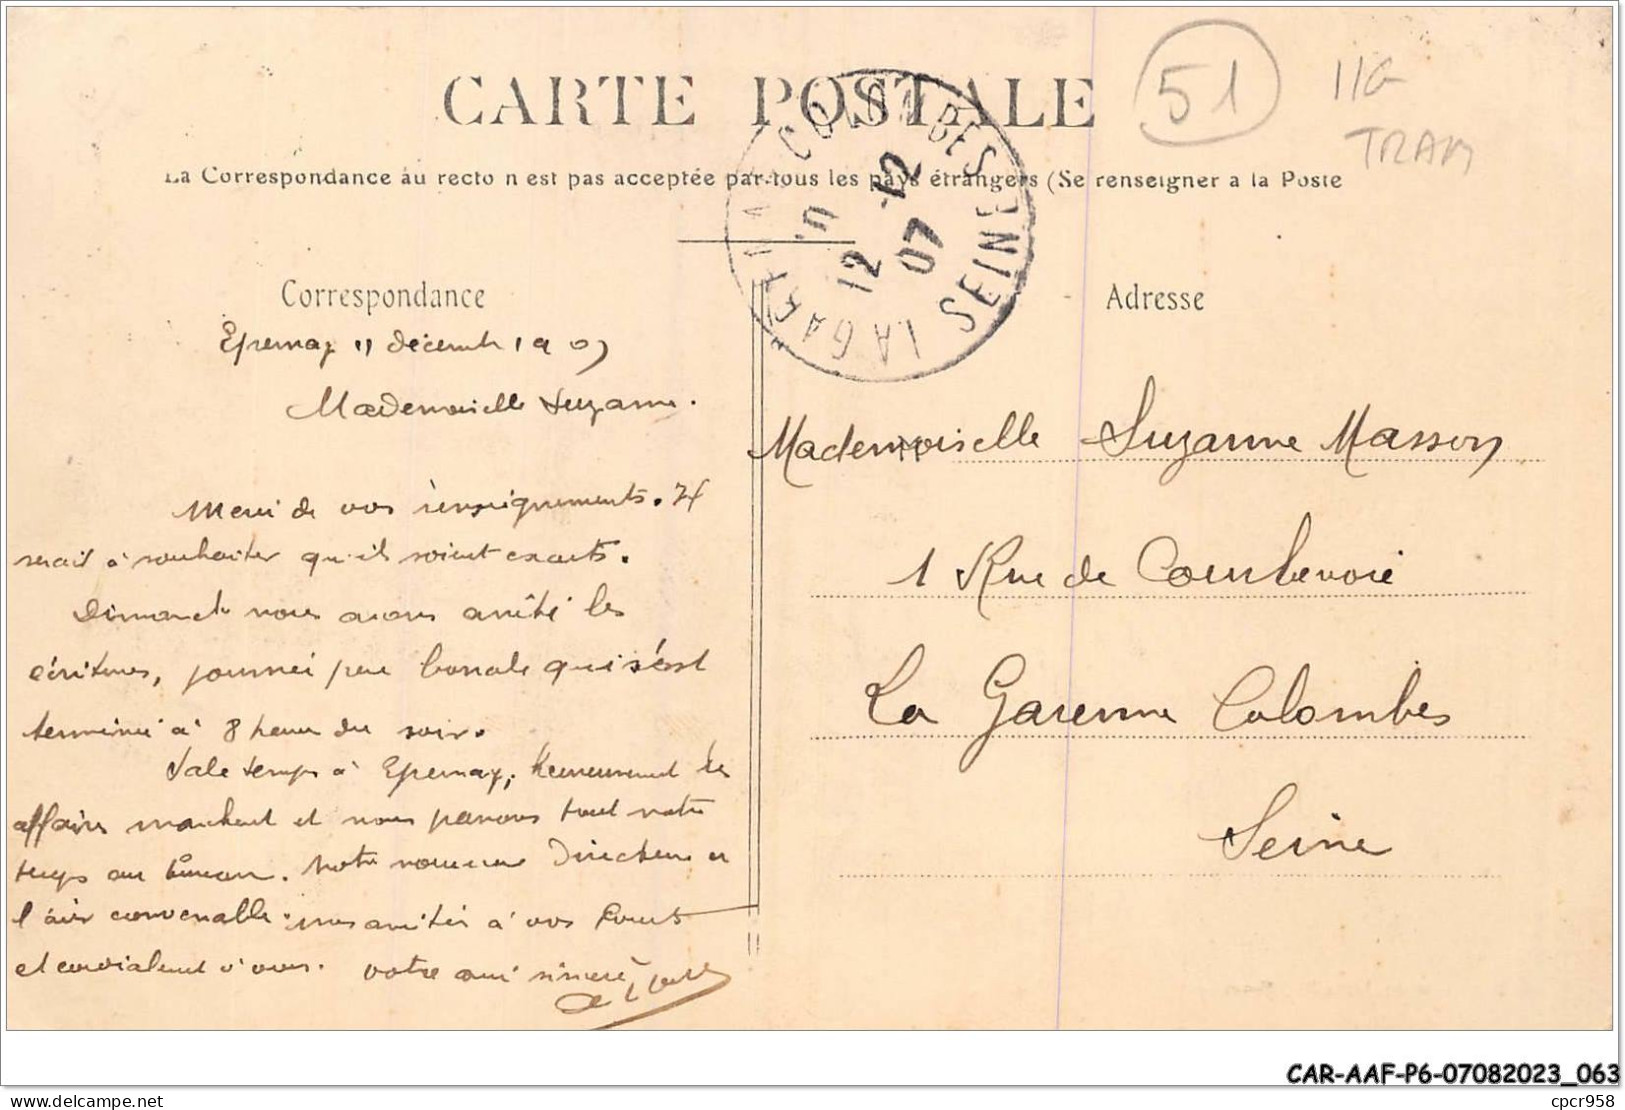 CARTE POSTALE
51
11G
TRAM
La Correspondance au recto n est pas acceptée par tous les pays étrangers (Se renseigner a la Poste
LA GARENNE COLOMBES SEINE
12
12
07
Correspondance
Adresse
Epernay 11 décembre 1907
Mademoiselle Suzanne.
Merci de vos renseignements. Il
serait à souhaiter qu'ils soient exacts.
Dimanche nous avons arrêté les
écritures, journée peu banale qui s'est
terminée à 8 heures du soir.
Sale temps à Epernay, heureusement les
affaires marchent et nous passons tout notre
temps au bureau. Notre nouveau Directeur a
l'air convenable. nos amitiés à vos
et cordialement à vous. votre ami sincère
Mademoiselle Suzanne Masson
1 Rue de Courbevoie
La Garenne Colombes
Seine
CAR-AAF-P6-07082023_063
delcampe.net
cpcr958